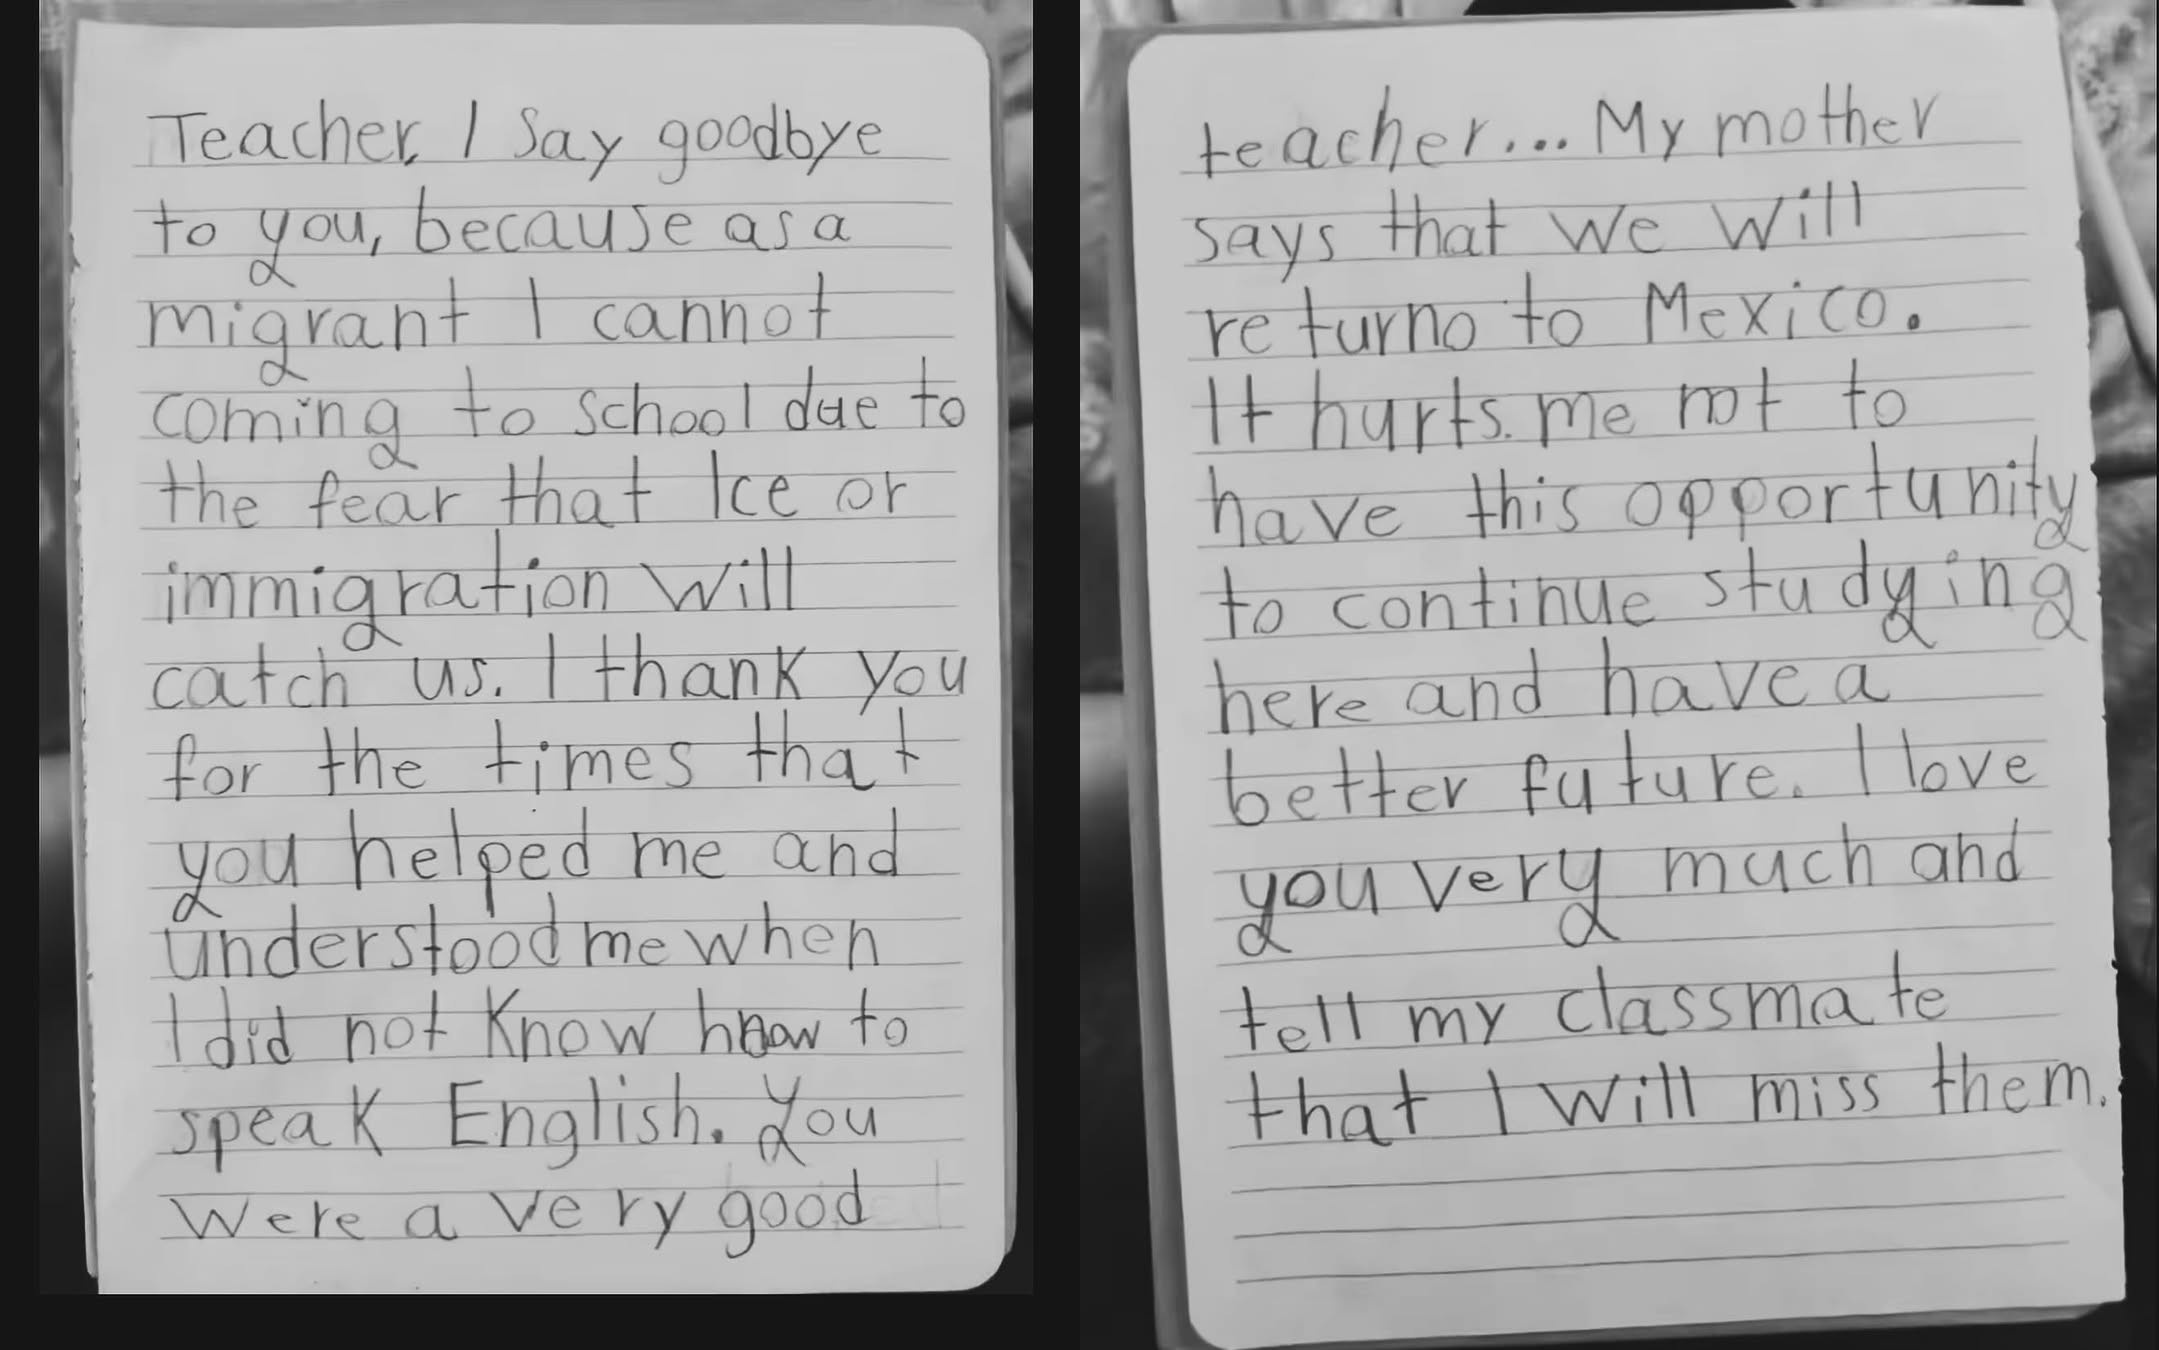 Teacher, I say goodbye
to you, because as a
migrant I cannot
coming to school due to
the fear that Ice or
immigration will
catch us. I thank you
for the times that
you helped me and
understood me when
I did not know how to
speak English. You
were a very good
teacher... My mother
says that we will
returno to Mexico.
It hurts. me not to
have this opportunity
to continue studying
here and have a
better future. I love
you very much and
tell my classmate
that I will miss them.